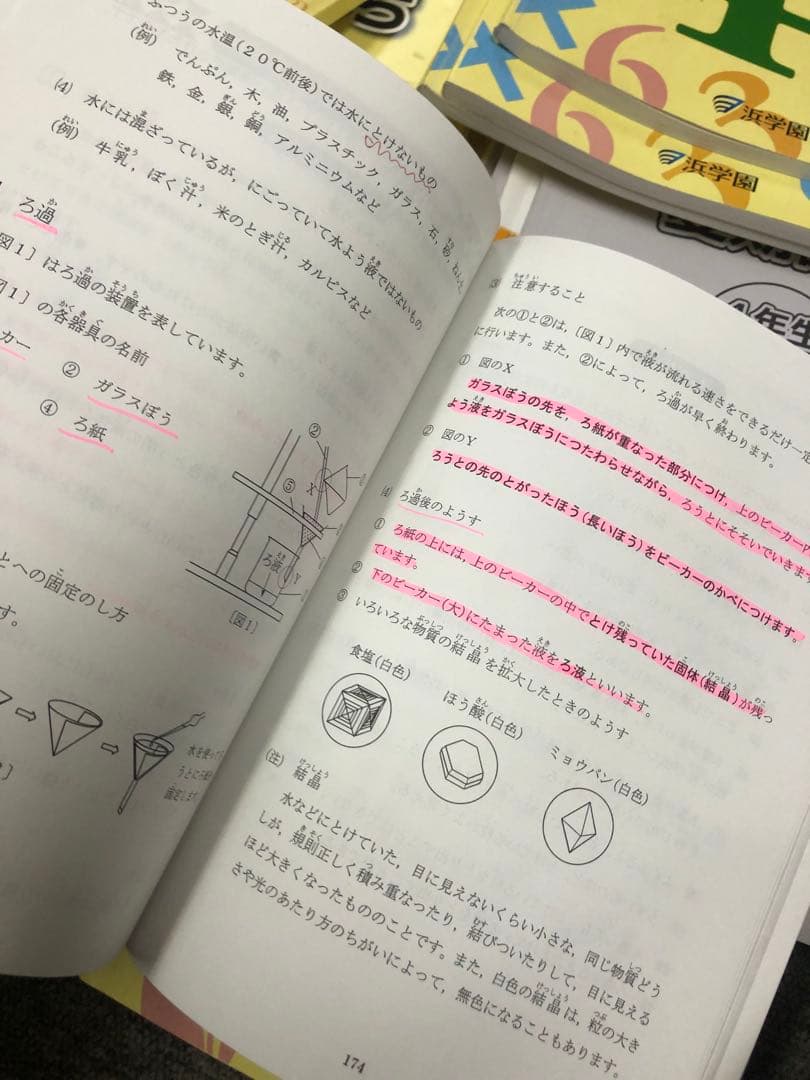 ふつうの水温(20℃前後)では水にとけないもの
(例) でんぷん，木，油，プラスチック，ガラス，石，砂，ねんど
鉄，金，銀，銅，アルミニウムなど
(4) 水には混ざっているが，にごっていて水よう液ではないもの
(例) 牛乳，ぼく汁，米のとぎ汁，カルピスなど
ろ過
図1〕はろ過の装置を表しています。
図1〕の各器具の名前
カー
② ガラスぼう
④ ろ紙
②
X
⑤
ろ液
Y
〔図1〕
とへの固定のし方
す。
⇨ ⇨
水を使って
うとに
固定しま
〕
(3) 注意すること
次の①と②は，〔図1〕内で液が流れる速さをできるだけ一定
に行います。また，②によって，ろ過が早く終わります。
① 図のX
ガラスぼうの先を，ろ紙が重なった部分につけ，上のビーカー
よう液をガラスぼうにつたわらせながら，ろうとにそそいでいきます
② 図のY
ろうとの先のとがったほう(長いほう)をビーカーのかべにつけます。
(4) ろ過後のようす
① ろ紙の上には，上のビーカーの中でとけ残っていた固体(結晶)が残っ
ています。
② 下のビーカー(大)にたまった液をろ液といいます。
③ いろいろな物質の結晶を拡大したときのようす
食塩(白色)
ほう酸(白色)
ミョウバン(白色)
(注) 結晶
水などにとけていた，目に見えないくらい小さな，同じ物質どう
しが，規則正しく積み重なったり，結びついたりして，目に見える
ほど大きくなったもののことです。また，白色の結晶は，粒の大き
さや光のあたり方のちがいによって，無色になることもあります。
174
浜学園
浜学園
年生